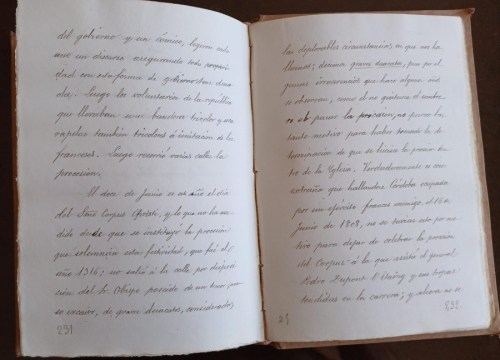 del gobierno y un cómico, leyeron cada
uno un discurso asegurando toda prosperi-
dad con esta forma de gobierno tan desea-
da. Luego los voluntarios de la república
que llevaban una bandera tricolor y esca-
rapelas también tricolores á imitacion de los
franceses. Luego recorrió varias calles la
procesion.
El doce de Junio es el día
del Smo. Corpus Christe, y lo que no ha su-
cedido desde que se instituyó la procesion
que solemniza esta festividad, que fué el
año 1316: no salió á la calle por disposi-
cion del Sr. Obispo poseido de un temor, pare-
so excesivo, de graves desacatos, considerado,
231
las deplorables circunstancias en que nos ha-
llamos; decimos graves desacatos, pues por el
general irreverencias que hace algun año
se observan, como el no quitarse el sombre-
ro al pasar la procesion, no parece bas-
tante motivo para haber tomado la de-
terminacion de que se hiciera la procesion den-
tro de la Yglesia. Verdaderamente es cosa
extraña que hallandose Córdoba ocupada
por un ejército frances enemigo, el 16 de
Junio de 1808, no se tuviera esto por mo-
tivo para dejar de celebrar la procesion
del Corpus á la que asistió el general
Pedro Dupont l'Etang y sus tropas
tendidas en la carrera; y ahora no se
24
232.